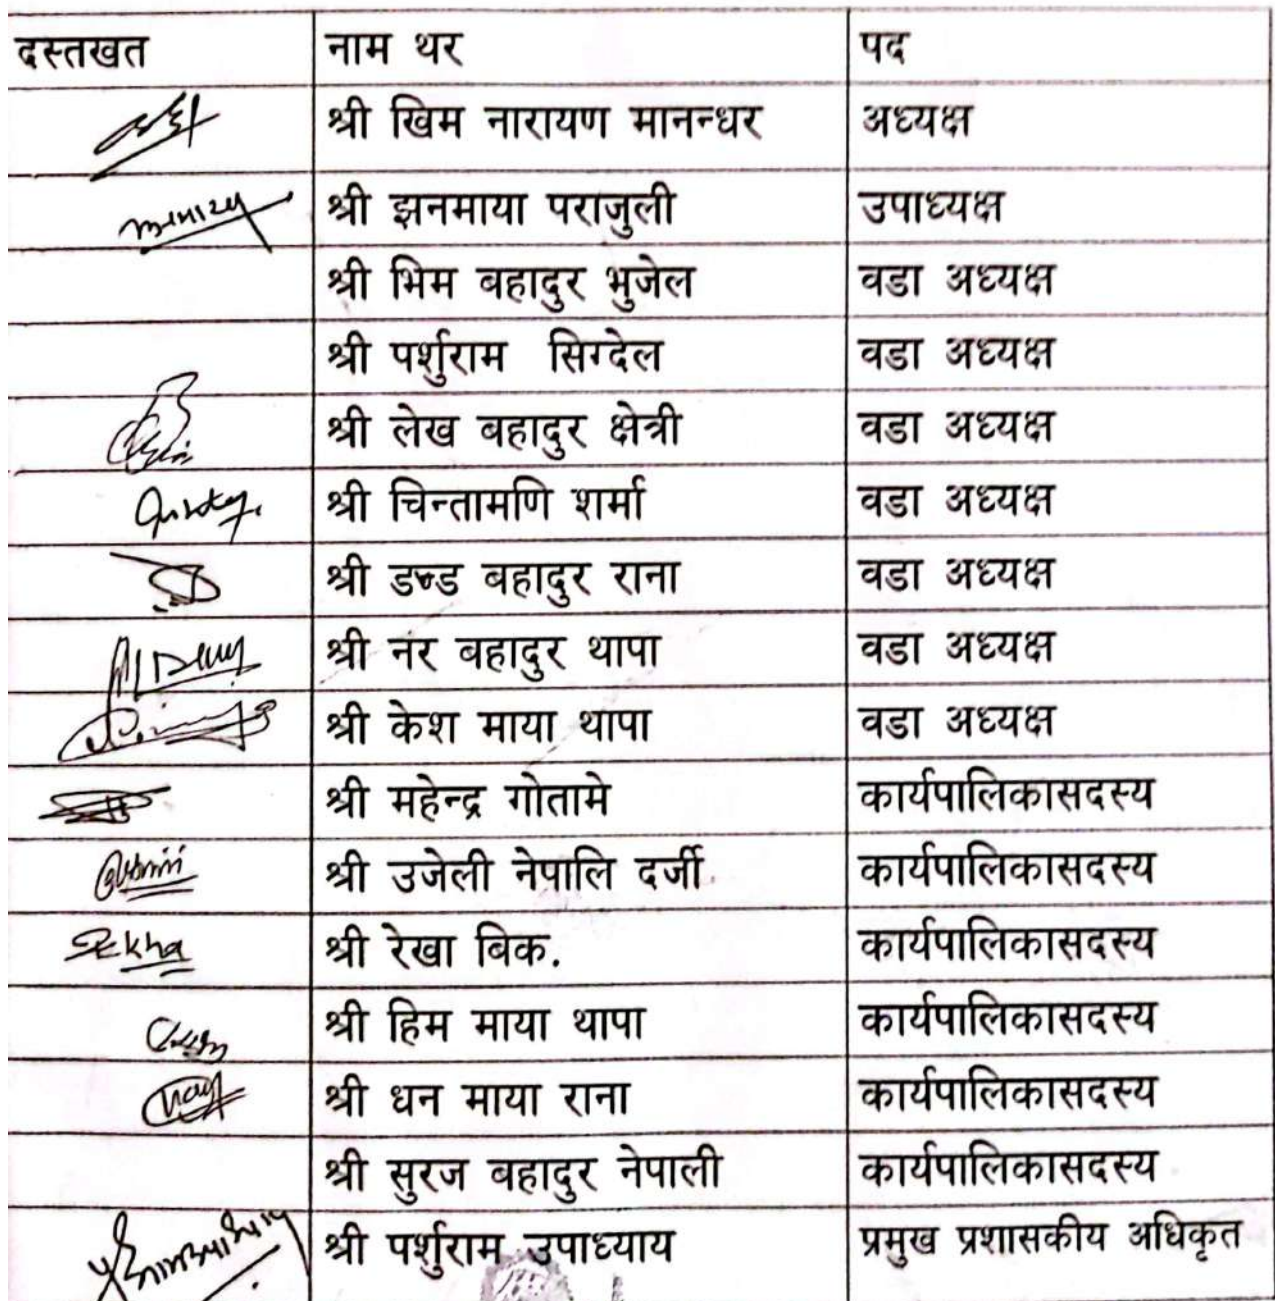 दस्तखत नाम थर पद
श्री खिम नारायण मानन्धर अध्यक्ष
श्री झनमाया पराजुली उपाध्यक्ष
श्री भिम बहादुर भुजेल वडा अध्यक्ष
श्री पर्शुराम सिग्देल वडा अध्यक्ष
श्री लेख बहादुर क्षेत्री वडा अध्यक्ष
श्री चिन्तामणि शर्मा वडा अध्यक्ष
श्री डण्ड बहादुर राना वडा अध्यक्ष
श्री नर बहादुर थापा वडा अध्यक्ष
श्री केश माया थापा वडा अध्यक्ष
श्री महेन्द्र गोतामे कार्यपालिकासदस्य
श्री उजेली नेपालि दर्जी कार्यपालिकासदस्य
Rekha श्री रेखा बिक. कार्यपालिकासदस्य
श्री हिम माया थापा कार्यपालिकासदस्य
श्री धन माया राना कार्यपालिकासदस्य
श्री सुरज बहादुर नेपाली कार्यपालिकासदस्य
श्री पर्शुराम उपाध्याय प्रमुख प्रशासकीय अधिकृत